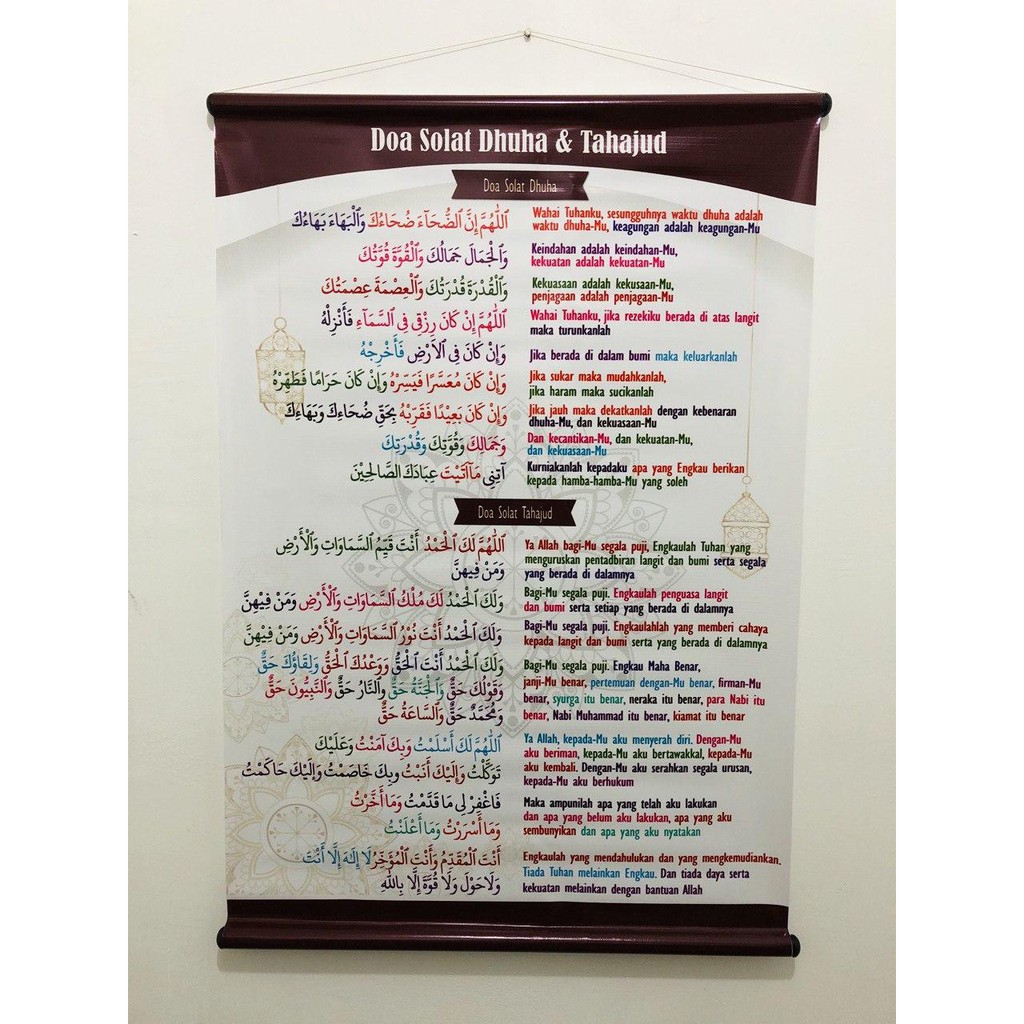 Doa Solat Dhuha & Tahajud
Doa Solat Dhuha
اَللّٰهُمَّ إِنَّ الضُّحَآءَ ضُحَاءُكَ وَالْبَهَاءَ بَهَاءُكَ
Wahai Tuhanku, sesungguhnya waktu dhuha adalah
waktu dhuha-Mu, keagungan adalah keagungan-Mu
وَالْجَمَالَ جَمَالُكَ وَالْقُوَّةَ قُوَّتُكَ
Keindahan adalah keindahan-Mu,
kekuatan adalah kekuatan-Mu
وَالْقُدْرَةَ قُدْرَتُكَ وَالْعِصْمَةَ عِصْمَتُكَ
Kekuasaan adalah kekusaan-Mu,
penjagaan adalah penjagaan-Mu
اَللّٰهُمَّ إِنْ كَانَ رِزْقِى فِى السَّمَآءِ فَأَنْزِلْهُ
Wahai Tuhanku, jika rezekiku berada di atas langit
maka turunkanlah
وَإِنْ كَانَ فِى الْاَرْضِ فَأَخْرِجْهُ
Jika berada di dalam bumi maka keluarkanlah
وَإِنْ كَانَ مُعَسَّرًا فَيَسِّرْهُ وَإِنْ كَانَ حَرَامًا فَطَهِّرْهُ
Jika sukar maka mudahkanlah,
jika haram maka sucikanlah
وَإِنْ كَانَ بَعِيْدًا فَقَرِّبْهُ بِحَقِّ ضُحَاءِكَ وَبَهَاءِكَ
Jika jauh maka dekatkanlah dengan kebenaran
dhuha-Mu, dan kekuasaan-Mu
وَجَمَالِكَ وَقُوَّتِكَ وَقُدْرَتِكَ
Dan kecantikan-Mu, dan kekuatan-Mu,
dan kekuasaan-Mu
آتِنِى مَآاَتَيْتَ عِبَادَكَ الصَّالِحِيْنَ
Kurniakanlah kepadaku apa yang Engkau berikan
kepada hamba-hamba-Mu yang soleh
Doa Solat Tahajud
اَللّٰهُمَّ لَكَ الْحَمْدُ أَنْتَ قَيِّمُ السَّمَاوَاتِ وَالْأَرْضِ
وَمَنْ فِيهِنَّ
Ya Allah bagi-Mu segala puji, Engkaulah Tuhan yang
menguruskan pentadbiran langit dan bumi serta segala
yang berada di dalamnya
وَلَكَ الْحَمْدُ لَكَ مُلْكُ السَّمَاوَاتِ وَالْأَرْضِ وَمَنْ فِيْهِنَّ
Bagi-Mu segala puji. Engkaulah penguasa langit
dan bumi serta setiap yang berada di dalamnya
وَلَكَ الْحَمْدُ أَنْتَ نُوْرُ السَّمَاوَاتِ وَالْأَرْضِ وَمَنْ فِيْهِنَّ
Bagi-Mu segala puji. Engkaulahlah yang memberi cahaya
kepada langit dan bumi serta yang berada di dalamnya
وَلَكَ الْحَمْدُ أَنْتَ الْحَقُّ وَوَعْدُكَ الْحَقُّ وَلِقَاؤُكَ حَقٌّ
وَقَوْلُكَ حَقٌّ وَالْجَنَّةُ حَقٌّ وَالنَّارُ حَقٌّ وَالنَّبِيُّونَ حَقٌّ
وَمُحَمَّدٌ حَقٌّ وَالسَّاعَةُ حَقٌّ
Bagi-Mu segala puji. Engkau Maha Benar,
janji-Mu benar, pertemuan dengan-Mu benar, firman-Mu
benar, syurga itu benar, neraka itu benar, para Nabi itu
benar, Nabi Muhammad itu benar, kiamat itu benar
اَللّٰهُمَّ لَكَ أَسْلَمْتُ وَبِكَ آمَنْتُ وَعَلَيْكَ
تَوَكَّلْتُ وَإِلَيْكَ أَنَبْتُ وَبِكَ خَاصَمْتُ وَإِلَيْكَ حَاكَمْتُ
Ya Allah, kepada-Mu aku menyerah diri. Dengan-Mu
aku beriman, kepada-Mu aku bertawakkal, kepada-Mu
aku kembali. Dengan-Mu aku serahkan segala urusan,
kepada-Mu aku berhukum
فَاغْفِرْ لِى مَا قَدَّمْتُ وَمَا أَخَّرْتُ
وَمَا أَسْرَرْتُ وَمَا أَعْلَنْتُ
Maka ampunilah apa yang telah aku lakukan
dan apa yang belum aku lakukan, apa yang aku
sembunyikan dan apa yang aku nyatakan
أَنْتَ الْمُقَدِّمُ وَأَنْتَ الْمُؤَخِّرُ لَا إِلٰهَ إِلَّا أَنْتَ
وَلَاحَوْلَ وَلَا قُوَّةَ إِلَّا بِاللّٰهِ
Engkaulah yang mendahulukan dan yang mengkemudiankan.
Tiada Tuhan melainkan Engkau. Dan tiada daya serta
kekuatan melainkan dengan bantuan Allah